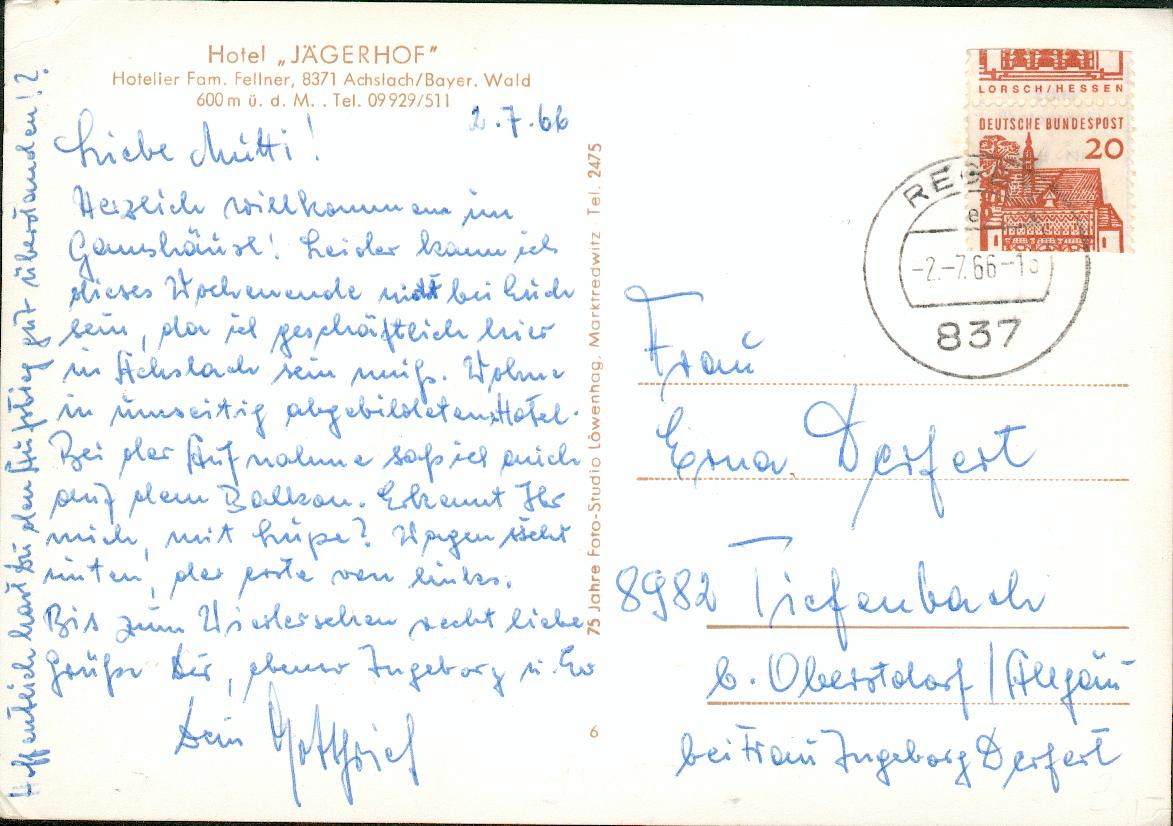 Hotel „JÄGERHOF"
Hotelier Fam. Fellner, 8371 Achslach/Bayer. Wald
600 m ü. d. M. . Tel. 09929/511
2.7.66
Liebe Mutti!
Herzlich willkommen im
Gamshäusl! Leider kann ich
dieses Wochenende nicht bei Euch
sein, da ich geschäftlich hier
in Achslach sein muß. Wohne
in umseitig abgebildeten Hotel.
Bei der Aufnahme saß ich auch
auf dem Balkon. Erkennt Ihr
mich, mit Lupe? Wagen steht
unten, der erste von links.
Bis zum Wiedersehen recht liebe
Grüße Dir, ebenso Ingeborg u.
Dein Gottfried
Hoffentlich hast Du den Aufstieg gut überstanden!?
75 Jahre Foto-Studio Löwenhag, Marktredwitz Tel. 2475
6
LORSCH/HESSEN
DEUTSCHE BUNDESPOST
20
-2.-7.66-
837
Frau
Erna Derfert
8982 Tiefenbach
b. Oberstdorf/Allgäu
bei Frau Ingeborg Derfert